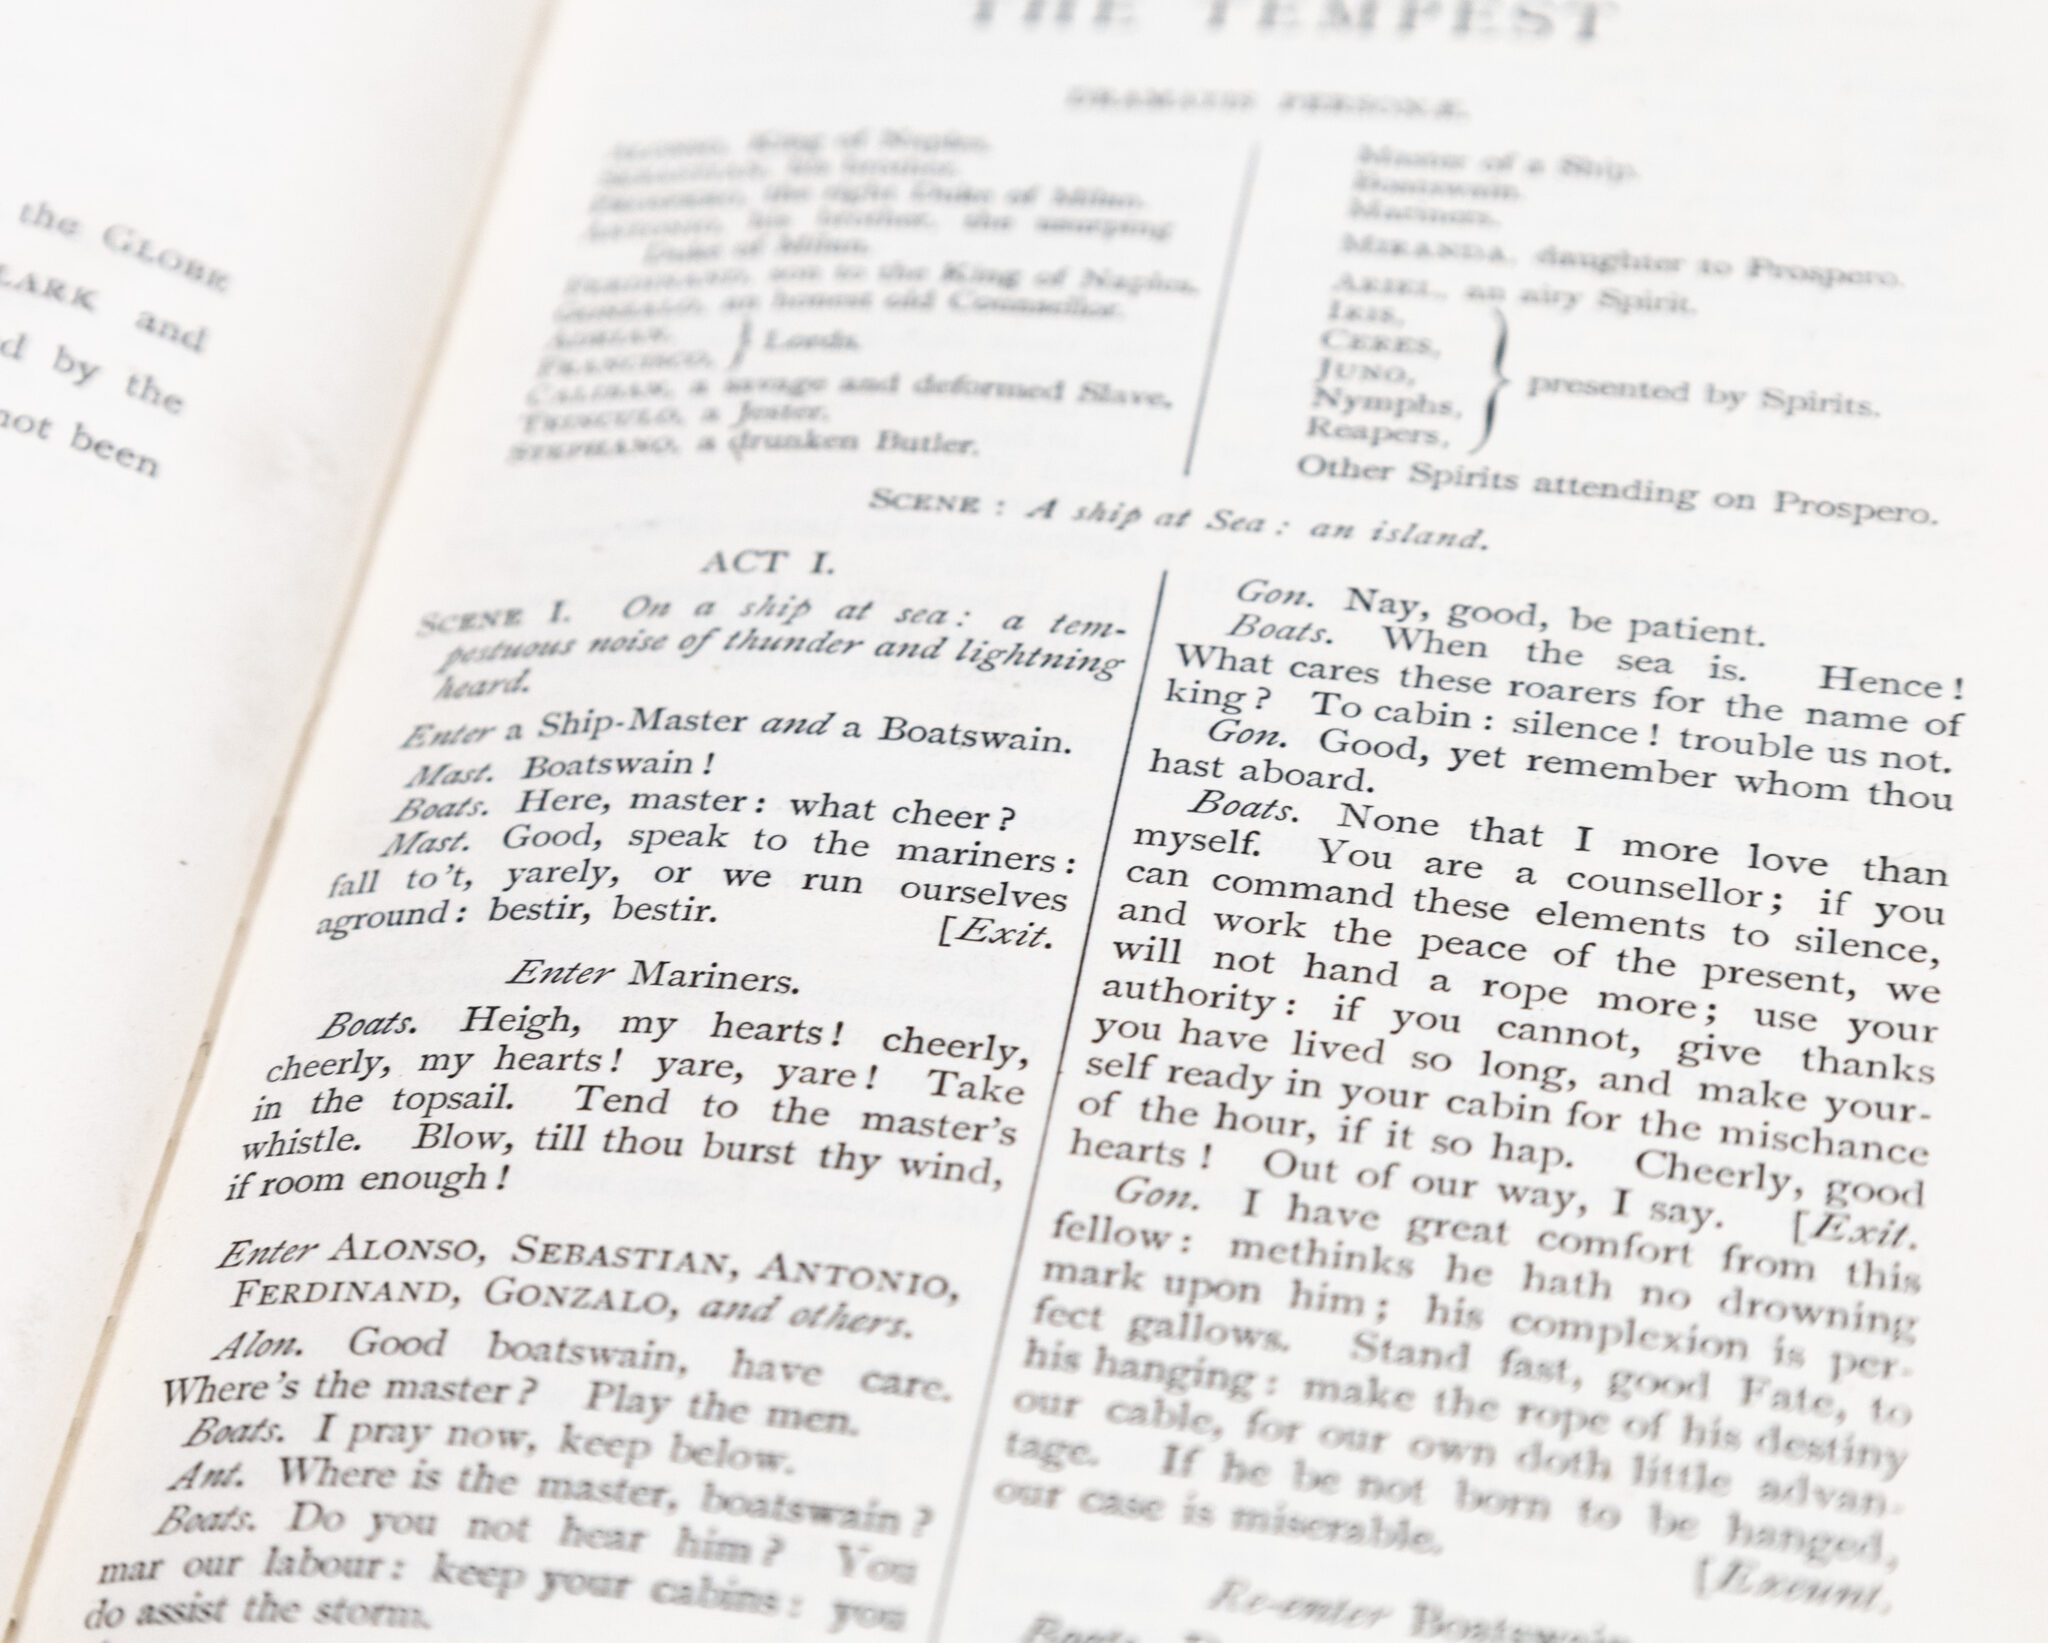 the GLOBE
LARK and
d by the
not been
THE TEMPEST
DRAMATIS PERSONÆ.
ALONSO, King of Naples.
SEBASTIAN, his brother.
PROSPERO, the right Duke of Milan.
ANTONIO, his brother, the usurping
Duke of Milan.
FERDINAND, son to the King of Naples.
GONZALO, an honest old Counsellor.
ADRIAN,
FRANCISCO, } Lords.
CALIBAN, a savage and deformed Slave.
TRINCULO, a Jester.
STEPHANO, a drunken Butler.
Master of a Ship.
Boatswain.
Mariners.
MIRANDA, daughter to Prospero.
ARIEL, an airy Spirit.
IRIS,
CERES,
JUNO, } presented by Spirits.
Nymphs,
Reapers,
Other Spirits attending on Prospero.
SCENE : A ship at Sea : an island.
ACT I.
SCENE I. On a ship at sea : a tem-
pestuous noise of thunder and lightning
heard.
Enter a Ship-Master and a Boatswain.
Mast. Boatswain !
Boats. Here, master : what cheer ?
Mast. Good, speak to the mariners :
fall to't, yarely, or we run ourselves
aground : bestir, bestir. [Exit.
Enter Mariners.
Boats. Heigh, my hearts ! cheerly,
cheerly, my hearts ! yare, yare ! Take
in the topsail. Tend to the master's
whistle. Blow, till thou burst thy wind,
if room enough !
Enter ALONSO, SEBASTIAN, ANTONIO,
FERDINAND, GONZALO, and others.
Alon. Good boatswain, have care.
Where's the master ? Play the men.
Boats. I pray now, keep below.
Ant. Where is the master, boatswain ?
Boats. Do you not hear him ? You
mar our labour : keep your cabins : you
do assist the storm.
Gon. Nay, good, be patient.
Boats. When the sea is. Hence !
What cares these roarers for the name of
king ? To cabin : silence ! trouble us not.
Gon. Good, yet remember whom thou
hast aboard.
Boats. None that I more love than
myself. You are a counsellor ; if you
can command these elements to silence,
and work the peace of the present, we
will not hand a rope more ; use your
authority : if you cannot, give thanks
you have lived so long, and make your-
self ready in your cabin for the mischance
of the hour, if it so hap. Cheerly, good
hearts ! Out of our way, I say. [Exit.
Gon. I have great comfort from this
fellow : methinks he hath no drowning
mark upon him ; his complexion is per-
fect gallows. Stand fast, good Fate, to
his hanging : make the rope of his destiny
our cable, for our own doth little advan-
tage. If he be not born to be hanged,
our case is miserable. [Exeunt.
Re-enter Boatswain.
Boats.